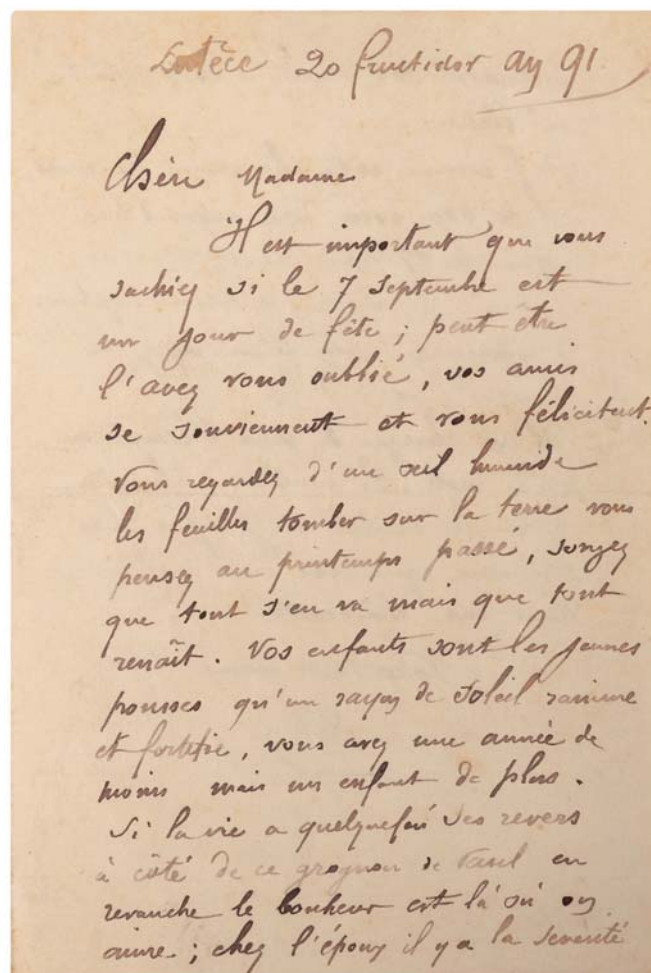 Lutèce 20 fructidor an 91
Chère Madame
Il est important que vous
sachiez si le 7 Septembre est
un jour de fête ; peut être
l'avez vous oublié, vos amis
se souviennent et vous félicitent.
Vous regardez d'un œil humide
les feuilles tomber sur la terre vous
pensez au printemps passé, songez
que tout s'en va mais que tout
renaît. Vos enfants sont les jeunes
pousses qu'un rayon de soleil ranime
et fortifie, vous avez une année de
moins mais un enfant de plus.
Si la vie a quelquefois des revers
à côté de ce grognon de en
revanche le bonheur est là où on
aime ; chez l'époux il y a la sévérité